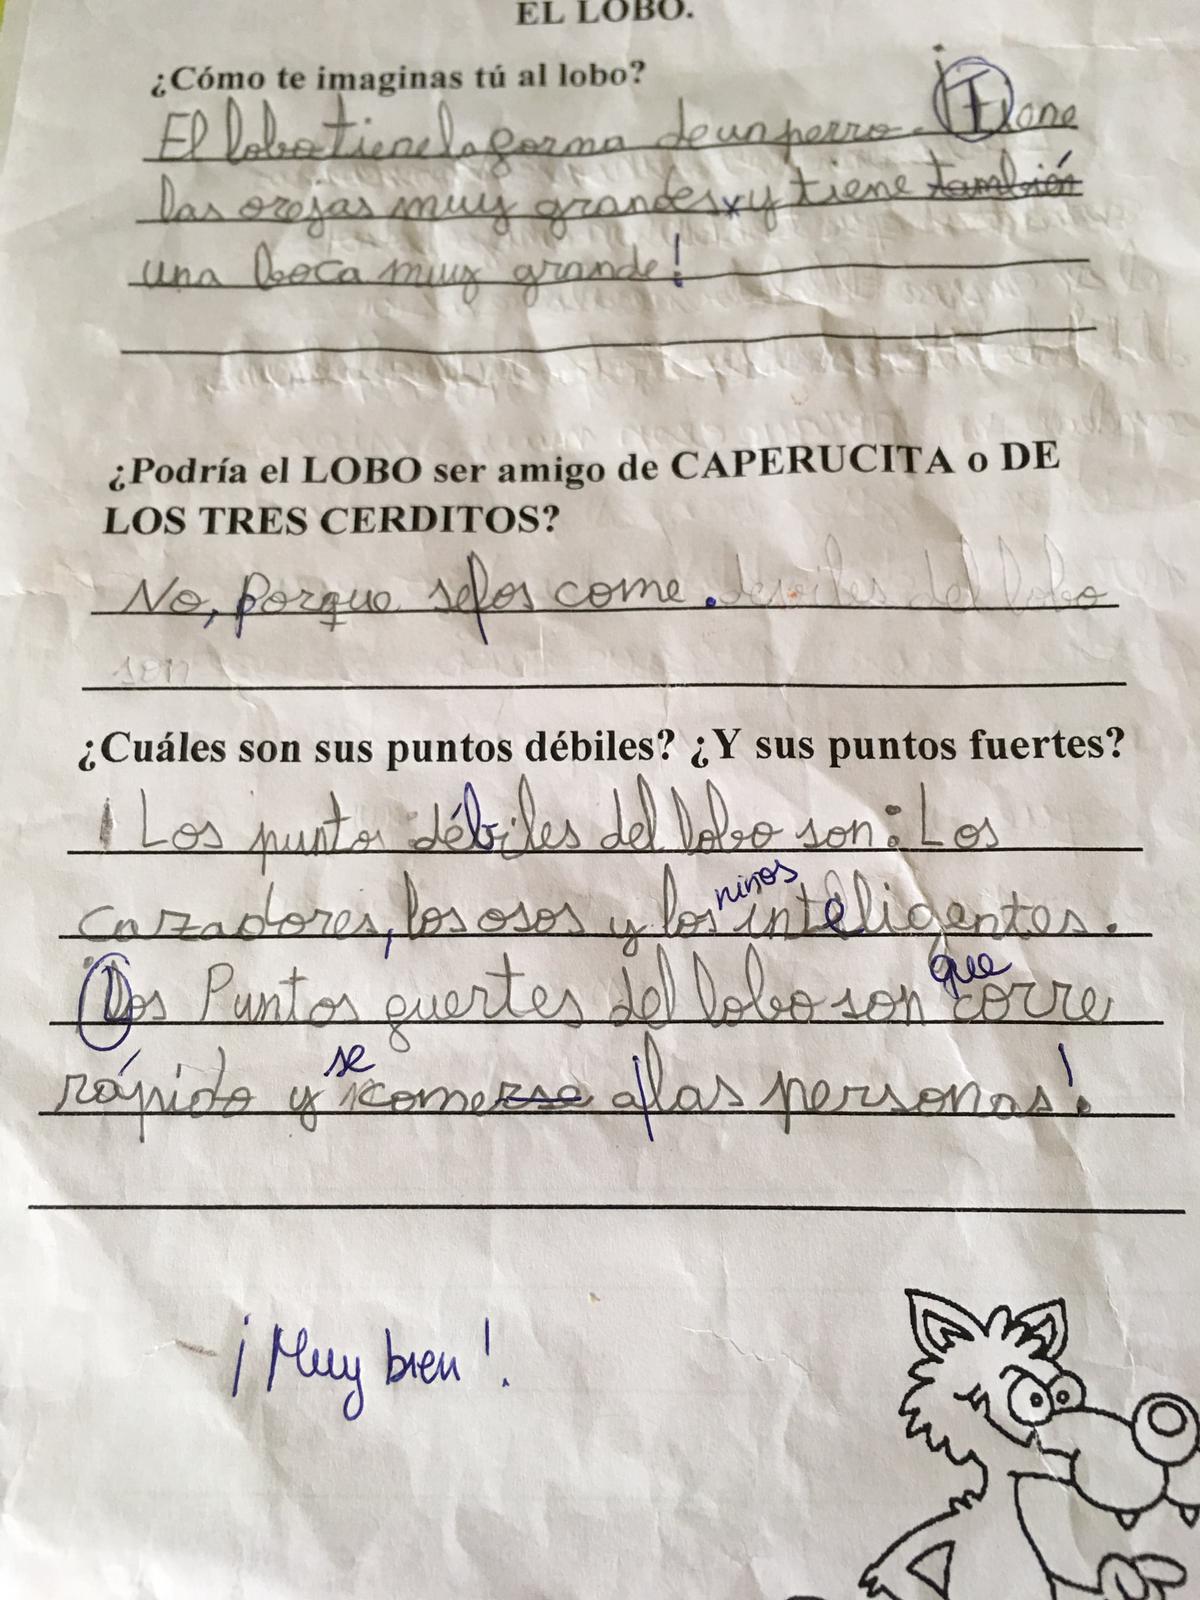 EL LOBO.
¿Cómo te imaginas tú al lobo?
El lobo tiene la forma de un perro. Tiene
las orejas muy grandes y tiene también
una boca muy grande!
¿Podría el LOBO ser amigo de CAPERUCITA o DE
LOS TRES CERDITOS?
No, porque se los come. devites del lobo
son
¿Cuáles son sus puntos débiles? ¿Y sus puntos fuertes?
¡Los punto débiles del lobo son: Los
cazadores, los osos y los niños inteligentes.
Los Puntos fuertes del lobo son que corre
rápido y se comerse a las personas!
¡Muy bien!